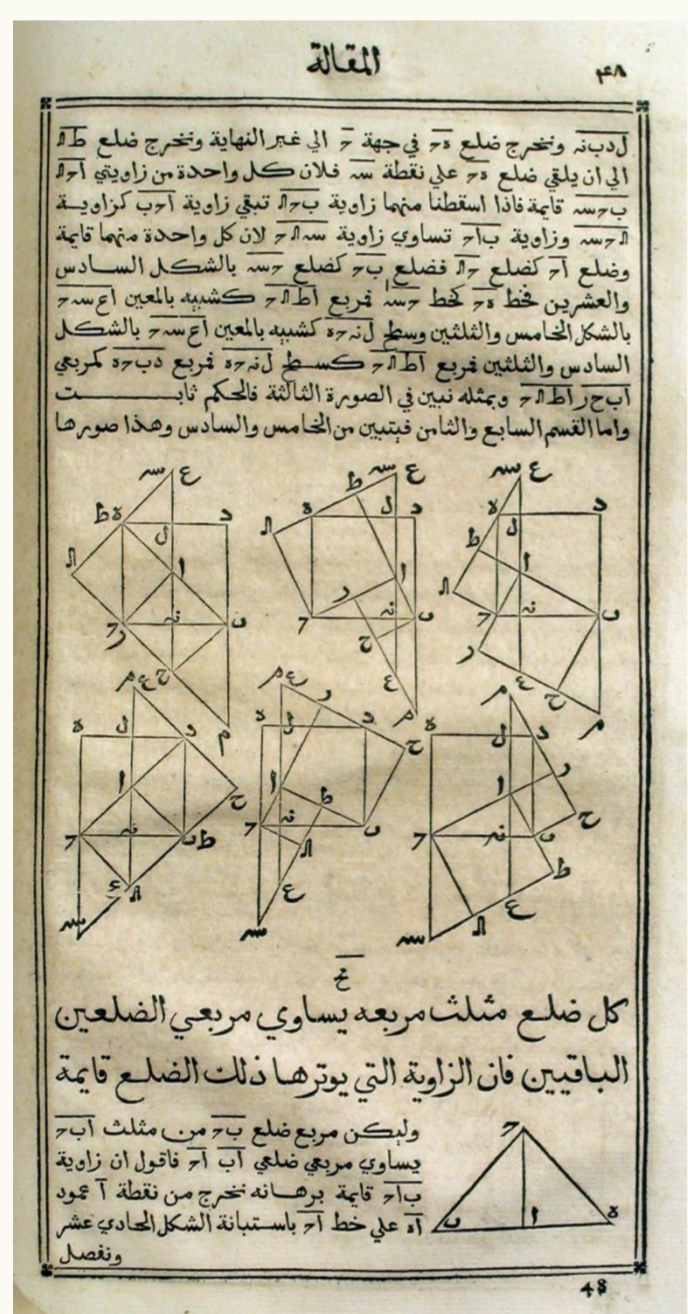 المقالة
٤٨
ل‍دب‍ن‍ه ونخرج ضلع ه‍ح في جهة ح الي غير النهاية ونخرج ضلع ط‍ك
الي ان يلقي ضلع ه‍ح علي نقطة س‍ه فلان كل واحدة من زاويتي ا‍ح‍ك
ب‍ح‍س‍ه قايمة فاذا اسقطنا منهما زاوية ب‍ح‍ك تبقي زاوية ا‍ح‍ب كزاويـة
ك‍ح‍س‍ه وزاوية ب‍ا‍ح تساوي زاوية س‍ه‍ك‍ح لان كل واحدة منهما قايمة
وضلع ا‍ح كضلع ح‍ك فضلع ب‍ح كضلع ح‍س‍ه بالشكل السادس
والعشرين فخط ه‍ح كخط ح‍س‍ه فمربع اط‍ك‍ح كشبيه بالمعين اع‍س‍ه‍ح
بالشكل الخامس والثلثين وسطح ل‍ن‍ه‍ح‍ه كشبيه بالمعين اع‍س‍ه‍ح بالشكل
السادس والثلثين فمربع اط‍ك‍ح كسطح ل‍ن‍ه‍ح‍ه فمربع دب‍ح‍ه كمربعي
اب‍ح‍ر اط‍ك‍ح وبمثله نبين في الصورة الثالثة فالحكم ثابـــت
واما القسم السابع والثامن فيتبين من الخامس والسادس وهذا صورها
كل ضلع مثلث مربعه يساوي مربعي الضلعين
الباقيين فان الزاوية التي يوترها ذلك الضلع قايمة
وليكن مربع ضلع ب‍ح من مثلث اب‍ح
يساوي مربعي ضلعي اب ا‍ح فاقول ان زاوية
ب‍ا‍ح قايمة برهانه نخرج من نقطة ا عمود
اه علي خط ا‍ح باستبانة الشكل الحادي عشر
ونفصل
48